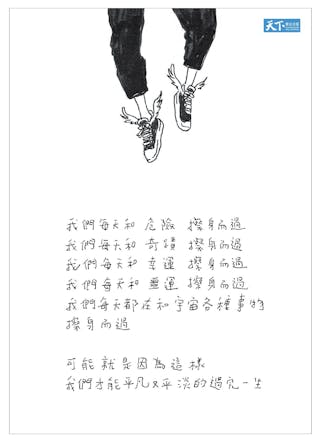 天下
我們每天和 危險 擦身而過
我們每天和 奇蹟 擦身而過
我們每天和 幸運 擦身而過
我們每天和 靈運 擦身而過
我們每天都在和宇宙各種事物
擦身而過
可能就是因為這樣
我們才能平凡又平淡的過完一生